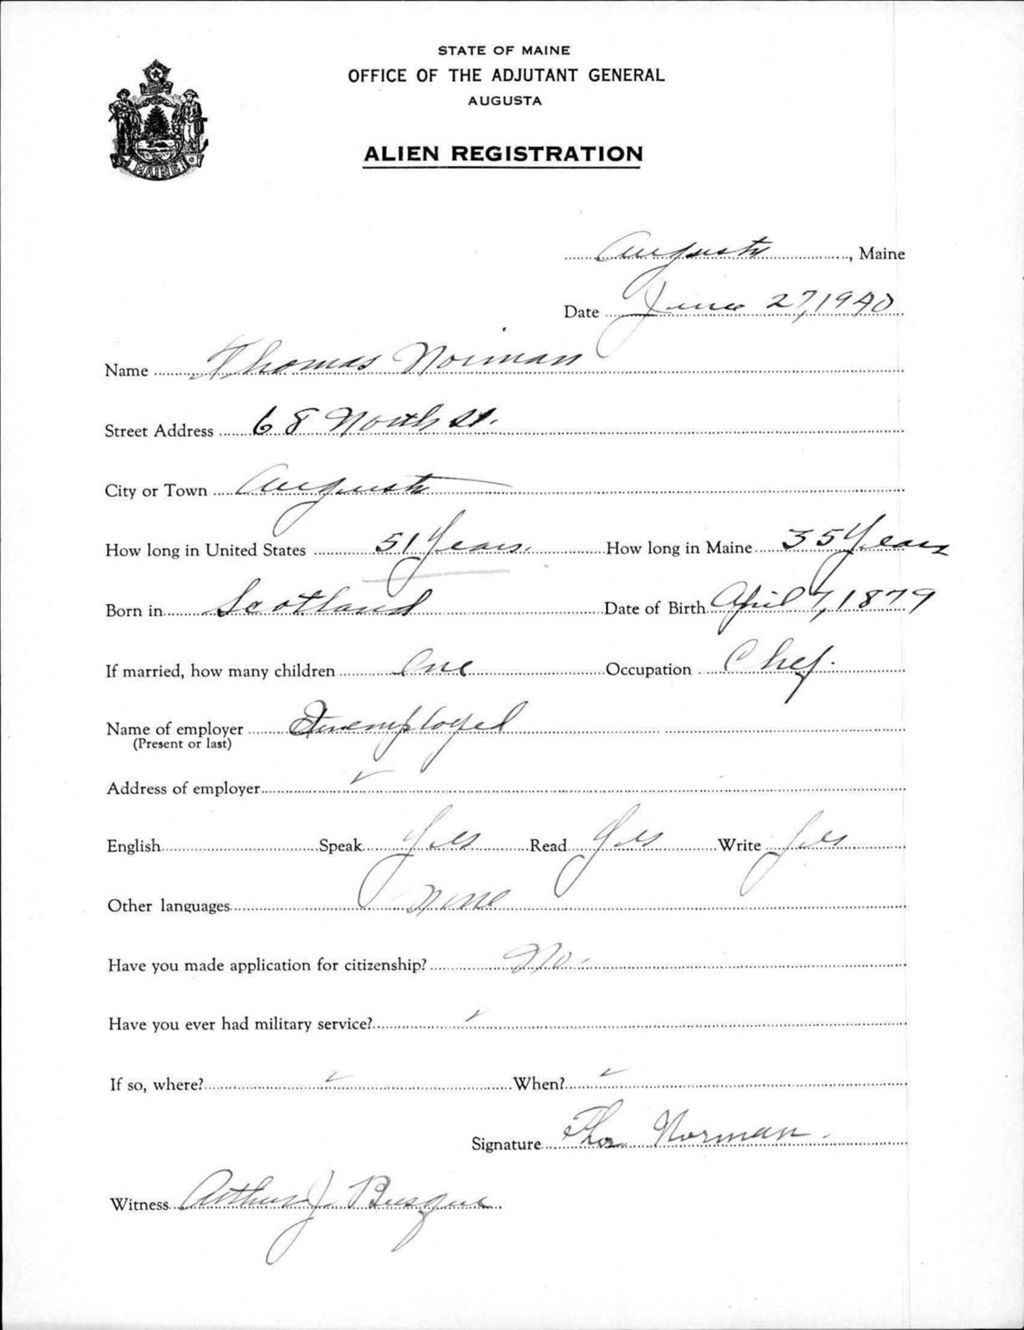 STATE OF MAINE
OFFICE OF THE ADJUTANT GENERAL
AUGUSTA
ALIEN REGISTRATION
MAINE
Augusta, Maine
Date June 27, 1940
Name Thomas Norman
Street Address 68 North St.
City or Town Augusta
How long in United States 51 Years. How long in Maine 35 Years
Born in Scotland Date of Birth April 7, 1879
If married, how many children One Occupation Chef.
Name of employer Unemployed
(Present or last)
Address of employer ✓
English Speak Yes Read Yes Write Yes
Other languages None
Have you made application for citizenship? No.
Have you ever had military service? ✓
If so, where? ✓ When? ✓
Signature Thos Norman.
Witness Arthur J. Busque